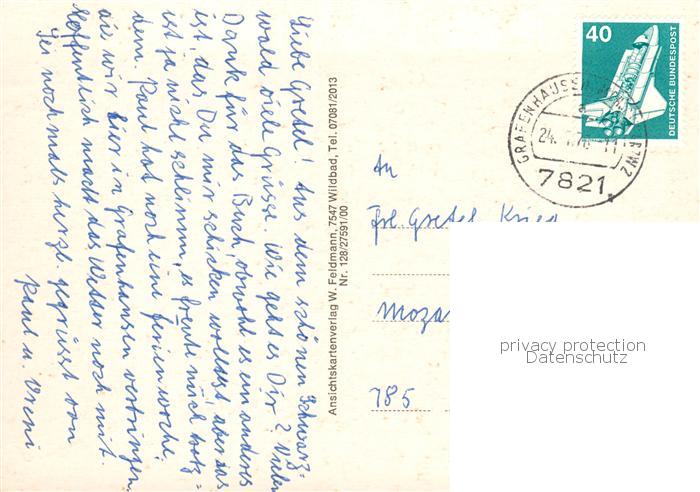 Liebe Gretel! Aus dem schönen Schwarz=
wald viele Grüsse. Wie geht es Dir? Vielen
Dank für das Buch, obwohl es ein anderes
ist, das Du mir schicken wolltest, aber das
ist ja nicht schlimm, es freute mich trotz=
dem. Paul hat noch eine Ferienwoche,
die wir hier in Grafenhausen verbringen.
Hoffentlich macht das Wetter noch mit.
Sei nochmals herzl. gegrüsst von
Paul u. Vreni
Ansichtskartenverlag W. Feldmann, 7547 Wildbad, Tel. 07081/2013
Nr. 128/27591/00
40
DEUTSCHE BUNDESPOST
GRAFENHAUSEN
7821
An
Frl. Gretel
Moza
785
privacy protection
Datenschutz